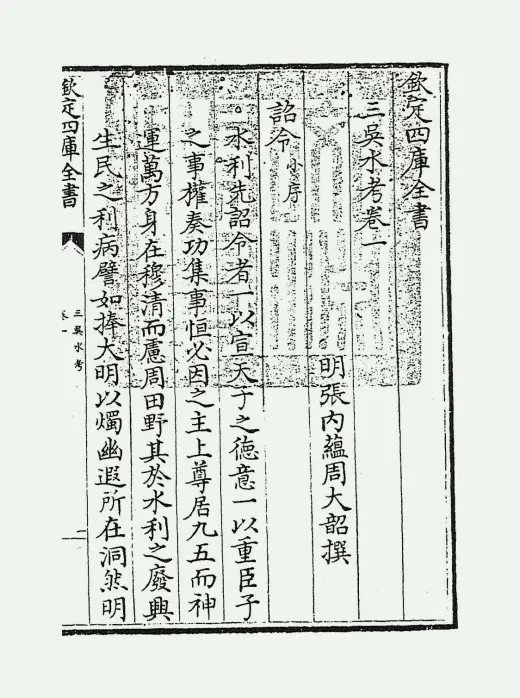 欽定四庫全書
三吳水考卷一
明張内蘊周大韶撰
詔令小序
水利先詔令者一以宣天子之德意一以重臣子
之事權奏功集事恒必因之主上尊居九五而神
運萬方身在穆清而慮周田野其於水利之廢興
生民之利病譬如捧大明以燭幽遐所在洞然明
欽定四庫全書
三吳水考
卷一
一